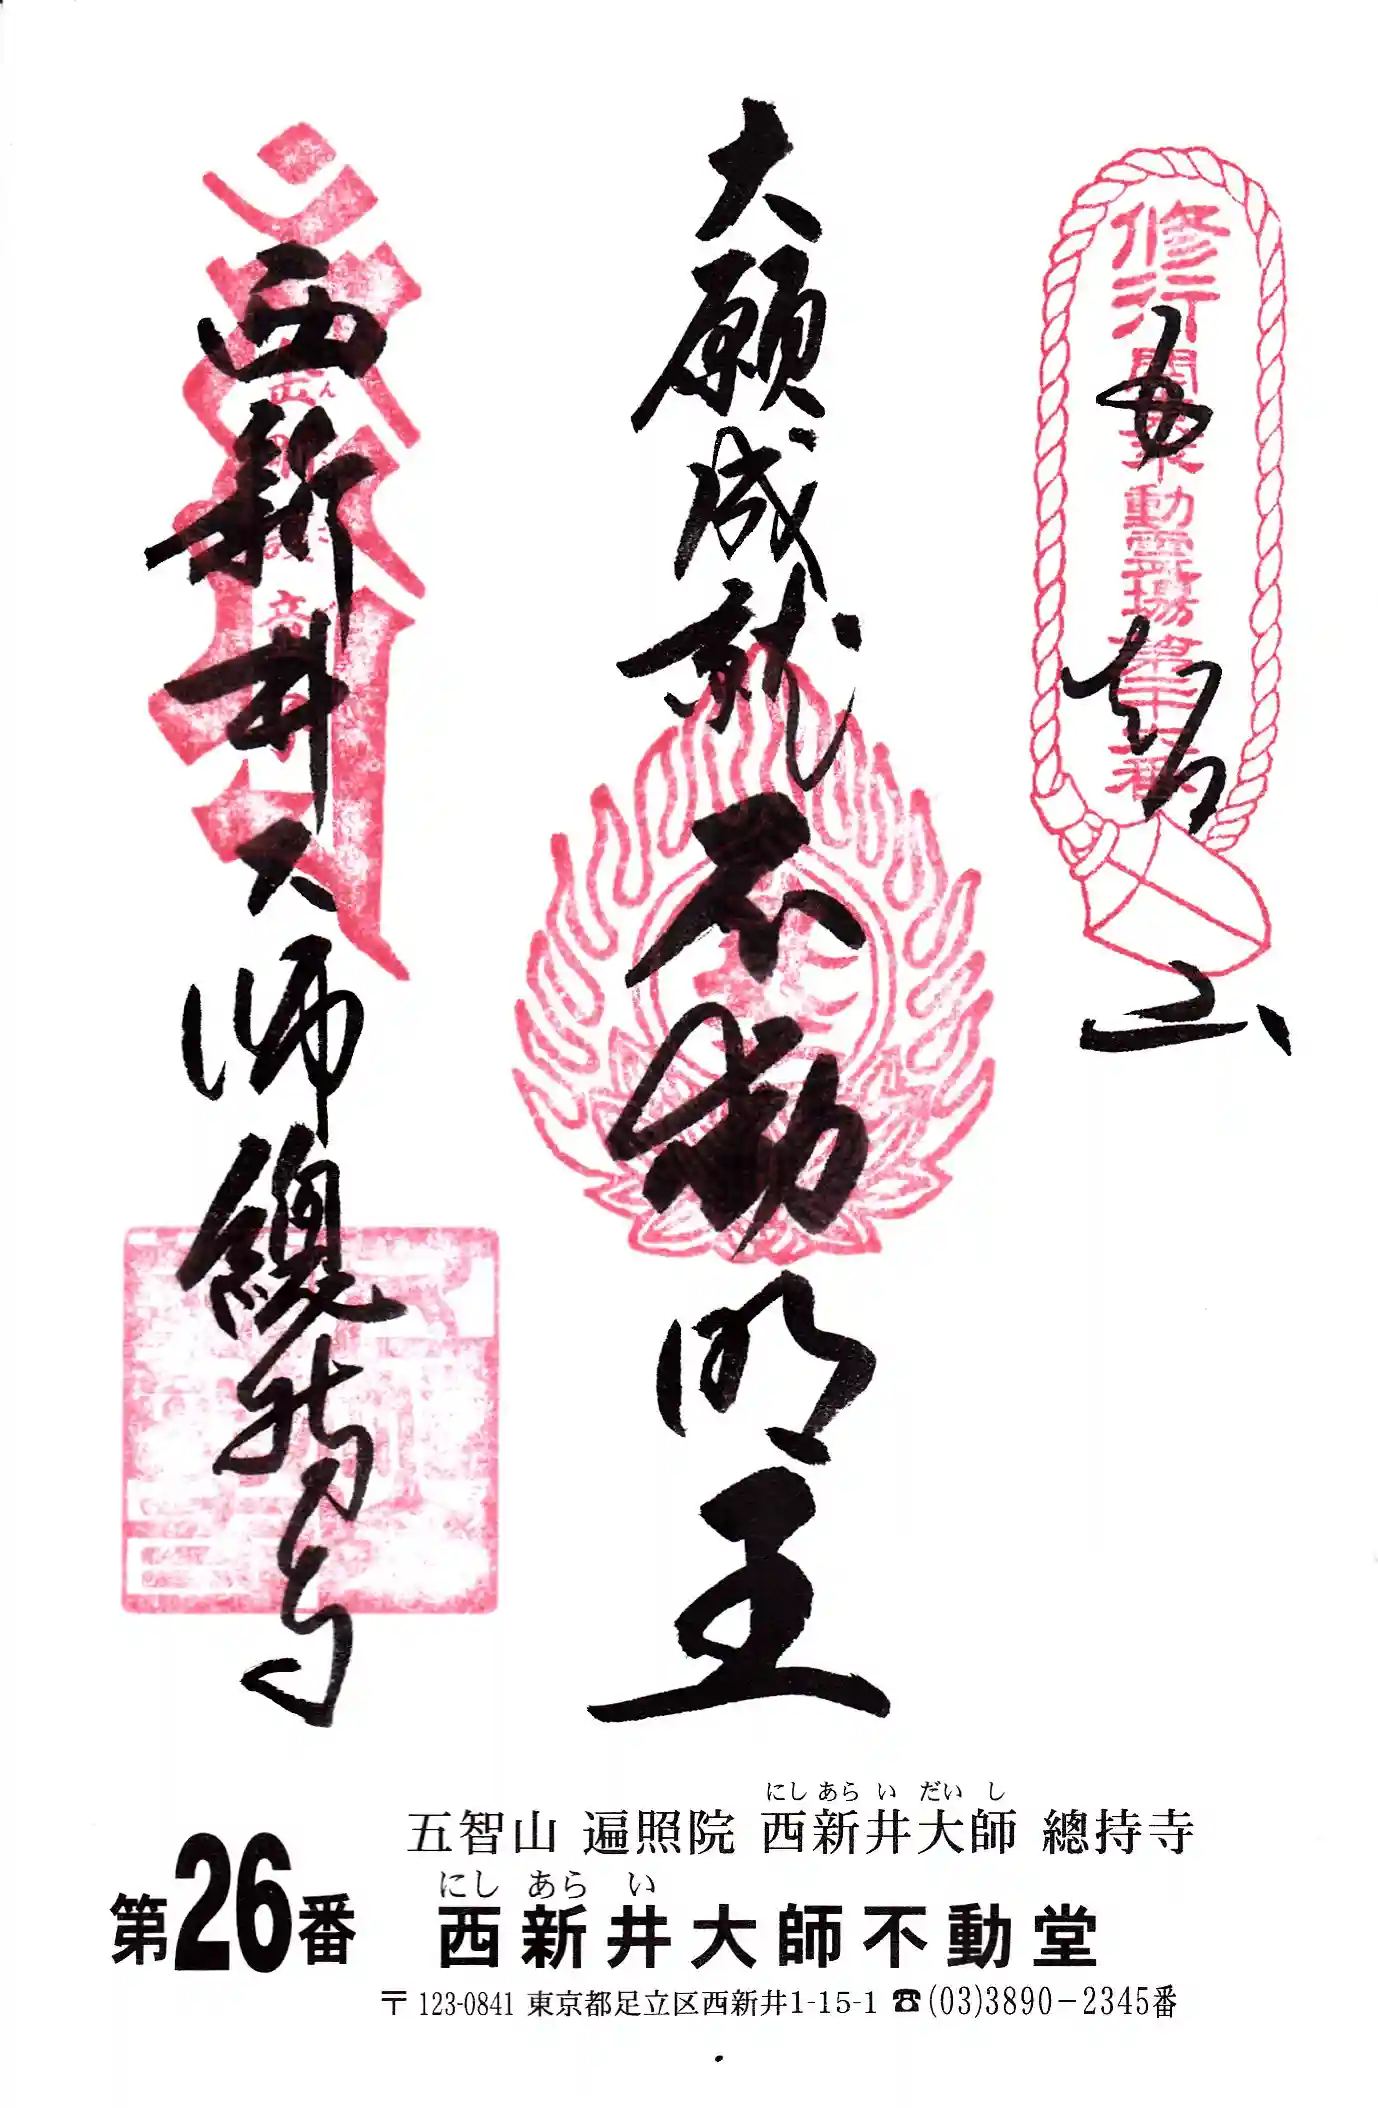 修行関東不動霊場第二十六番
五智山
大願成就不動明王
西新井大師總持寺
にし あら い だい し
五智山 遍照院 西新井大師 總持寺
にし あら い
第26番 西新井大師不動堂
〒123-0841 東京都足立区西新井1-15-1 ☎(03)3890-2345番